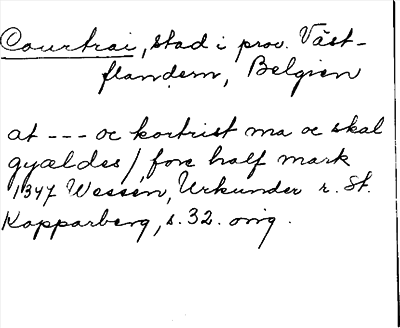 Courtrai, stad i prov. Väst-
flandern, Belgien
at --- oc kortrist ma oc skal
gyældes /, fore half mark
1347 Wessén, Urkunder r. St.
Kopparberg, s. 32. orig.